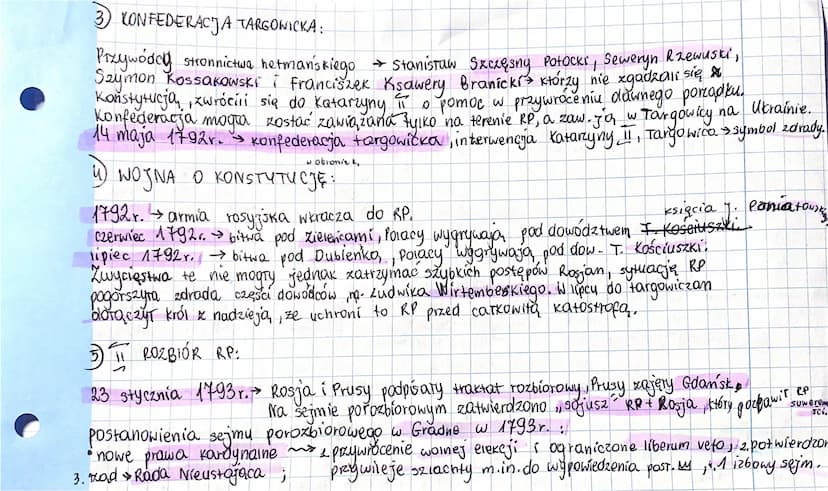 3) KONFEDERACJA TARGOWICKA:
Przywódcy stronnictwa hetmańskiego → Stanisław Szczęsny Potocki, Seweryn Rzewuski,
Szymon Kossakowski i Franciszek Ksawery Branicki → którzy nie zgadzali się z
Konstytucją, zwrócili się do Katarzyny II o pomoc w przywróceniu dawnego porządku.
Konfederacja mogła zostać zawiązana tylko na terenie RP, a zaw. ją w Targowicy na Ukrainie.
14 maja 1792r. → konfederacja targowicka, interwencja Katarzyny II, Targowica → symbol zdrady.
w obronie k.
4) WOJNA O KONSTYTUCJĘ:
1792r. → armia rosyjska wkracza do RP. księcia J. Poniatowskiego
czerwiec 1792r. → bitwa pod Zieleńcami, Polacy wygrywają pod dowództwem T. Kościuszki
lipiec 1792r. → bitwa pod Dubienką, Polacy wygrywają pod dow. T. Kościuszki.
Zwycięstwa te nie mogły jednak zatrzymać szybkich postępów Rosjan, sytuację RP
pogorszyła zdrada części dowódców, np. Ludwika Wirtemberskiego. W lipcu do targowiczan
dołączył król z nadzieją, że uchroni to RP przed całkowitą katastrofą.
5) II ROZBIÓR RP:
23 stycznia 1793r. → Rosja i Prusy podpisały traktat rozbiorowy, Prusy zajęły Gdańsk.
Na sejmie porozbiorowym zatwierdzono „sojusz" RP + Rosja, który pozbawił RP
suwerenności.
postanowienia sejmu porozbiorowego w Grodnie w 1793r.:
nowe prawa kardynalne → przywrócenie wolnej elekcji i ograniczone liberum veto, 2. potwierdzono
3. rząd → Rada Nieustająca; przywileje szlachty m.in. do wypowiedzenia post. , 4. 1 izbowy sejm.